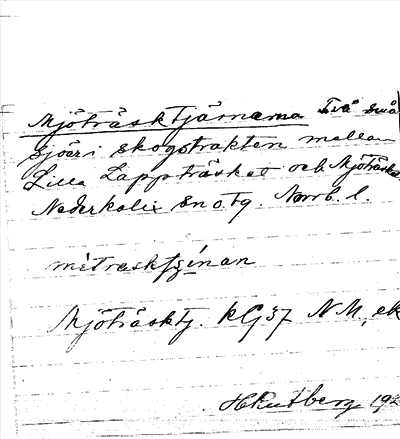 Mjöträsktjärnarna Två små
sjöar i skogstrakten mellan
Lilla Lappträsket och Mjöträsk
Nederkalix sn o tg. Norrb. l.
Mjöträsktj. kG37 NM, ek
192